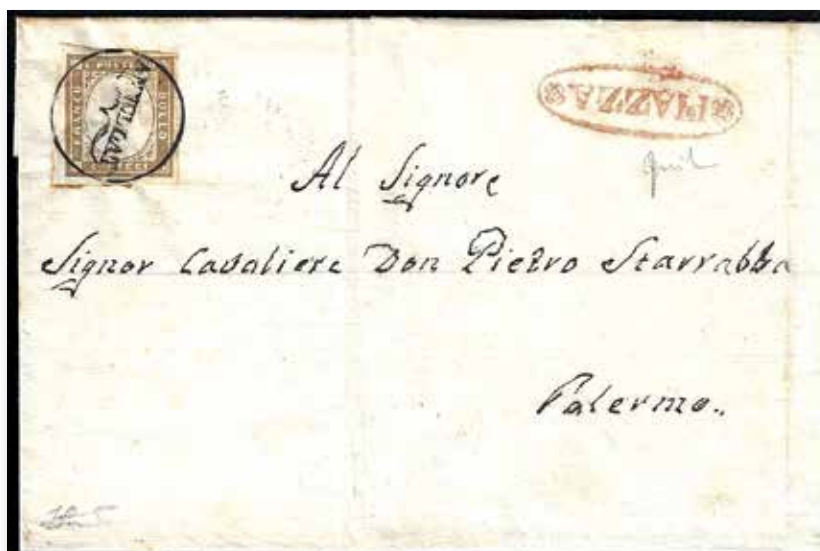 FRANCO
BOLLO
ANNULLATO
PIAZZA
Al Signore
Signor Cavaliere Don Pietro Starrabba
Palermo..